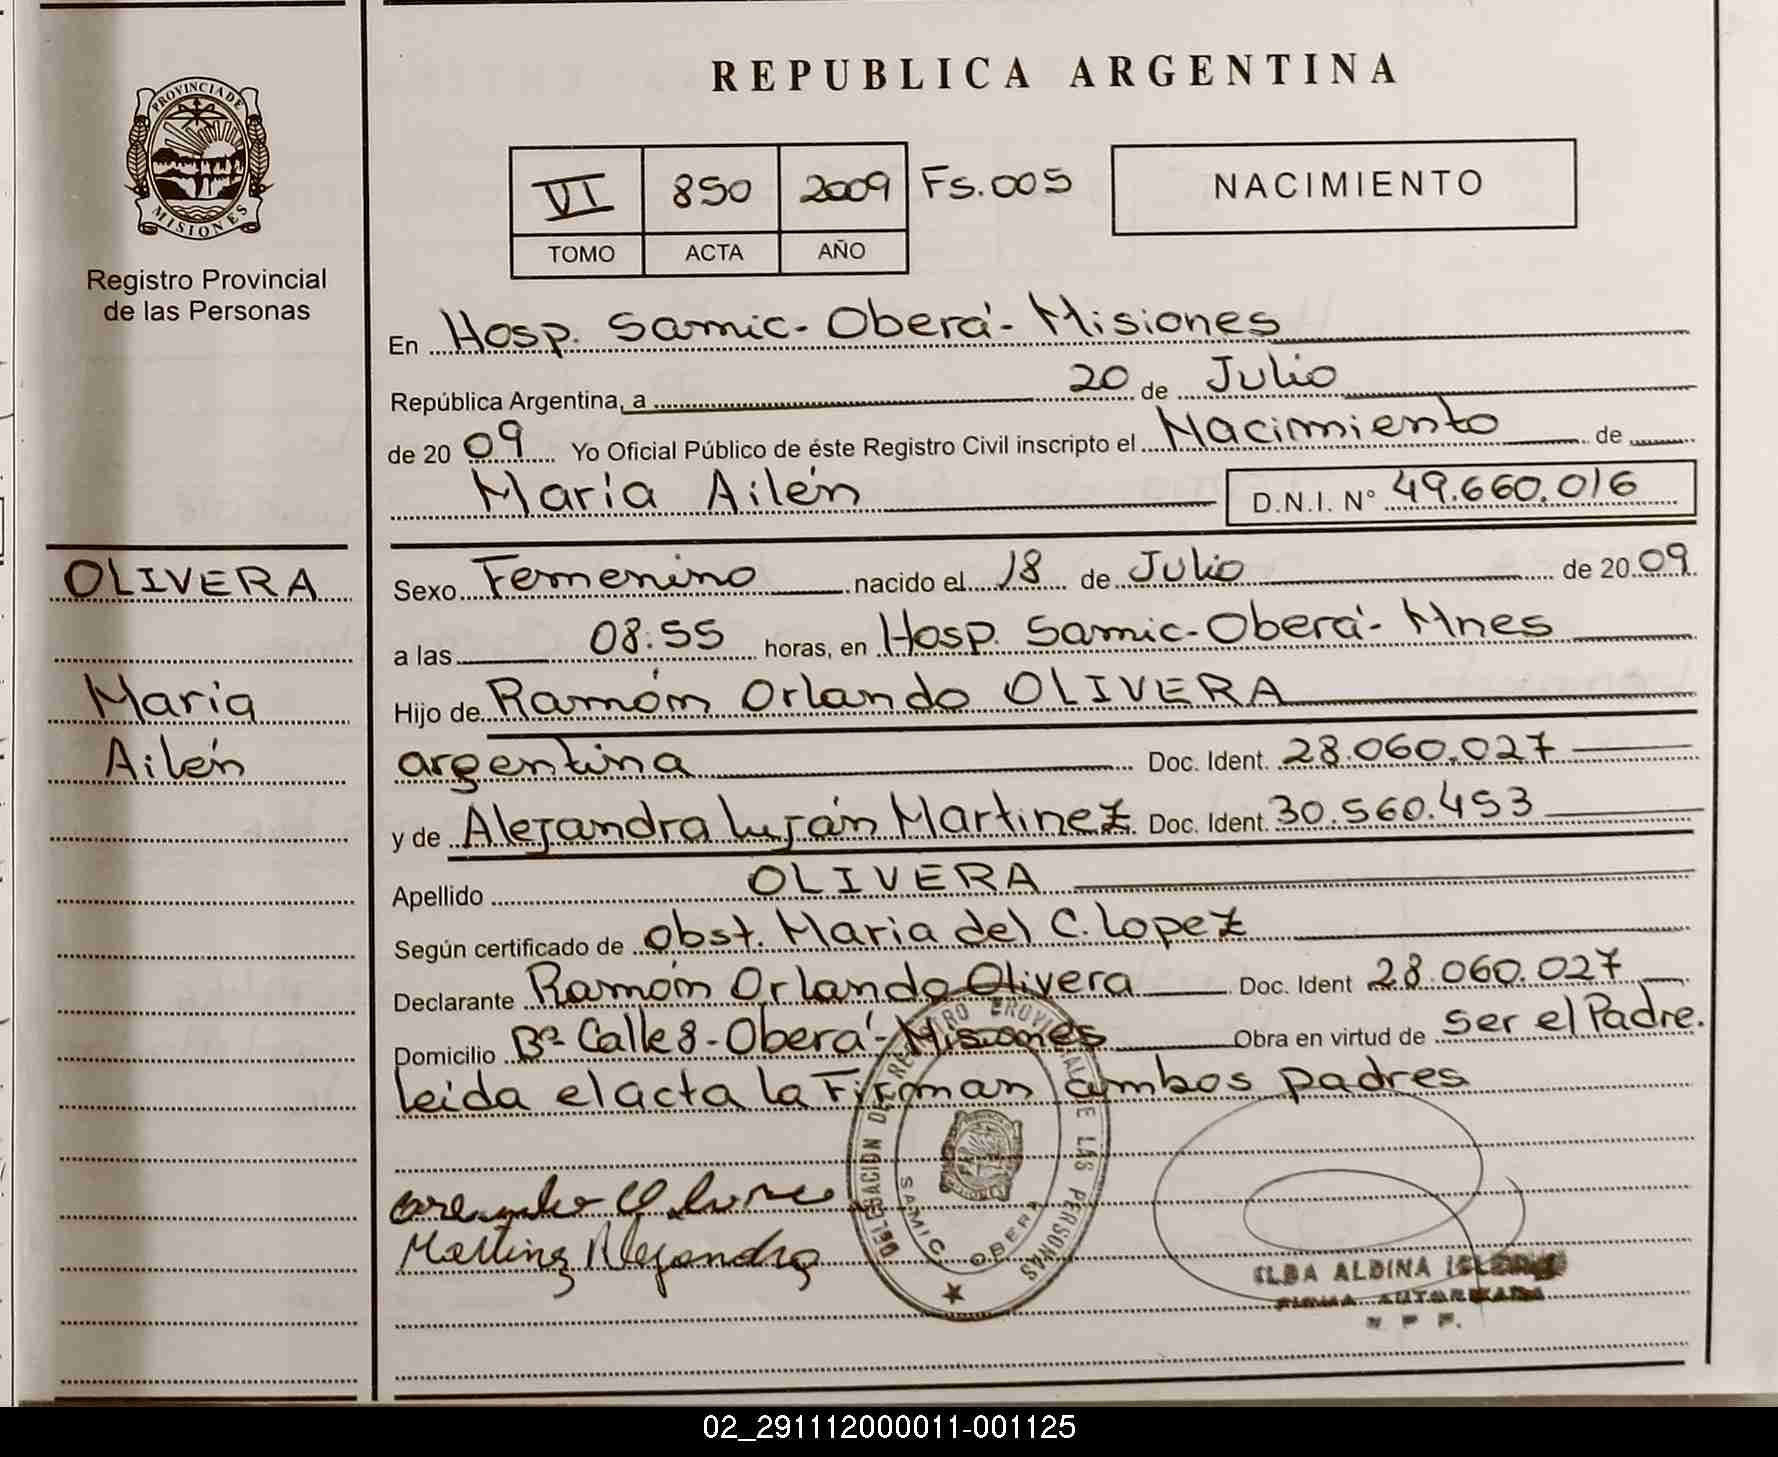 REPUBLICA ARGENTINA
PROVINCIA DE
MISIONES
Registro Provincial
de las Personas
VI 850 2009 Fs. 005
TOMO ACTA AÑO
NACIMIENTO
En Hosp. Samic - Oberá - Misiones
República Argentina, a 20 de Julio
de 20 09 Yo Oficial Público de éste Registro Civil inscripto el Nacimiento de
María Ailén D.N.I. N° 49.660.016
OLIVERA
María
Ailén
Sexo Femenino nacido el 18 de Julio de 20 09
a las 08:55 horas, en Hosp. Samic - Oberá - Mnes
Hijo de Ramón Orlando OLIVERA
argentina Doc. Ident. 28.060.027
y de Alejandra Luján Martinez Doc. Ident. 30.560.453
Apellido OLIVERA
Según certificado de Obst. Maria del C. Lopez
Declarante Ramón Orlando Olivera Doc. Ident 28.060.027
Domicilio Bº Calle 8 - Oberá - Misiones Obra en virtud de ser el Padre.
leída el acta la Firman ambos padres
DELEGACION DEL REGISTRO PROVINCIAL DE LAS PERSONAS
SAMIC OBERA
Martinez Alejandra
ELBA ALDINA
FIRMA AUTORIZADA
02_291112000011-001125